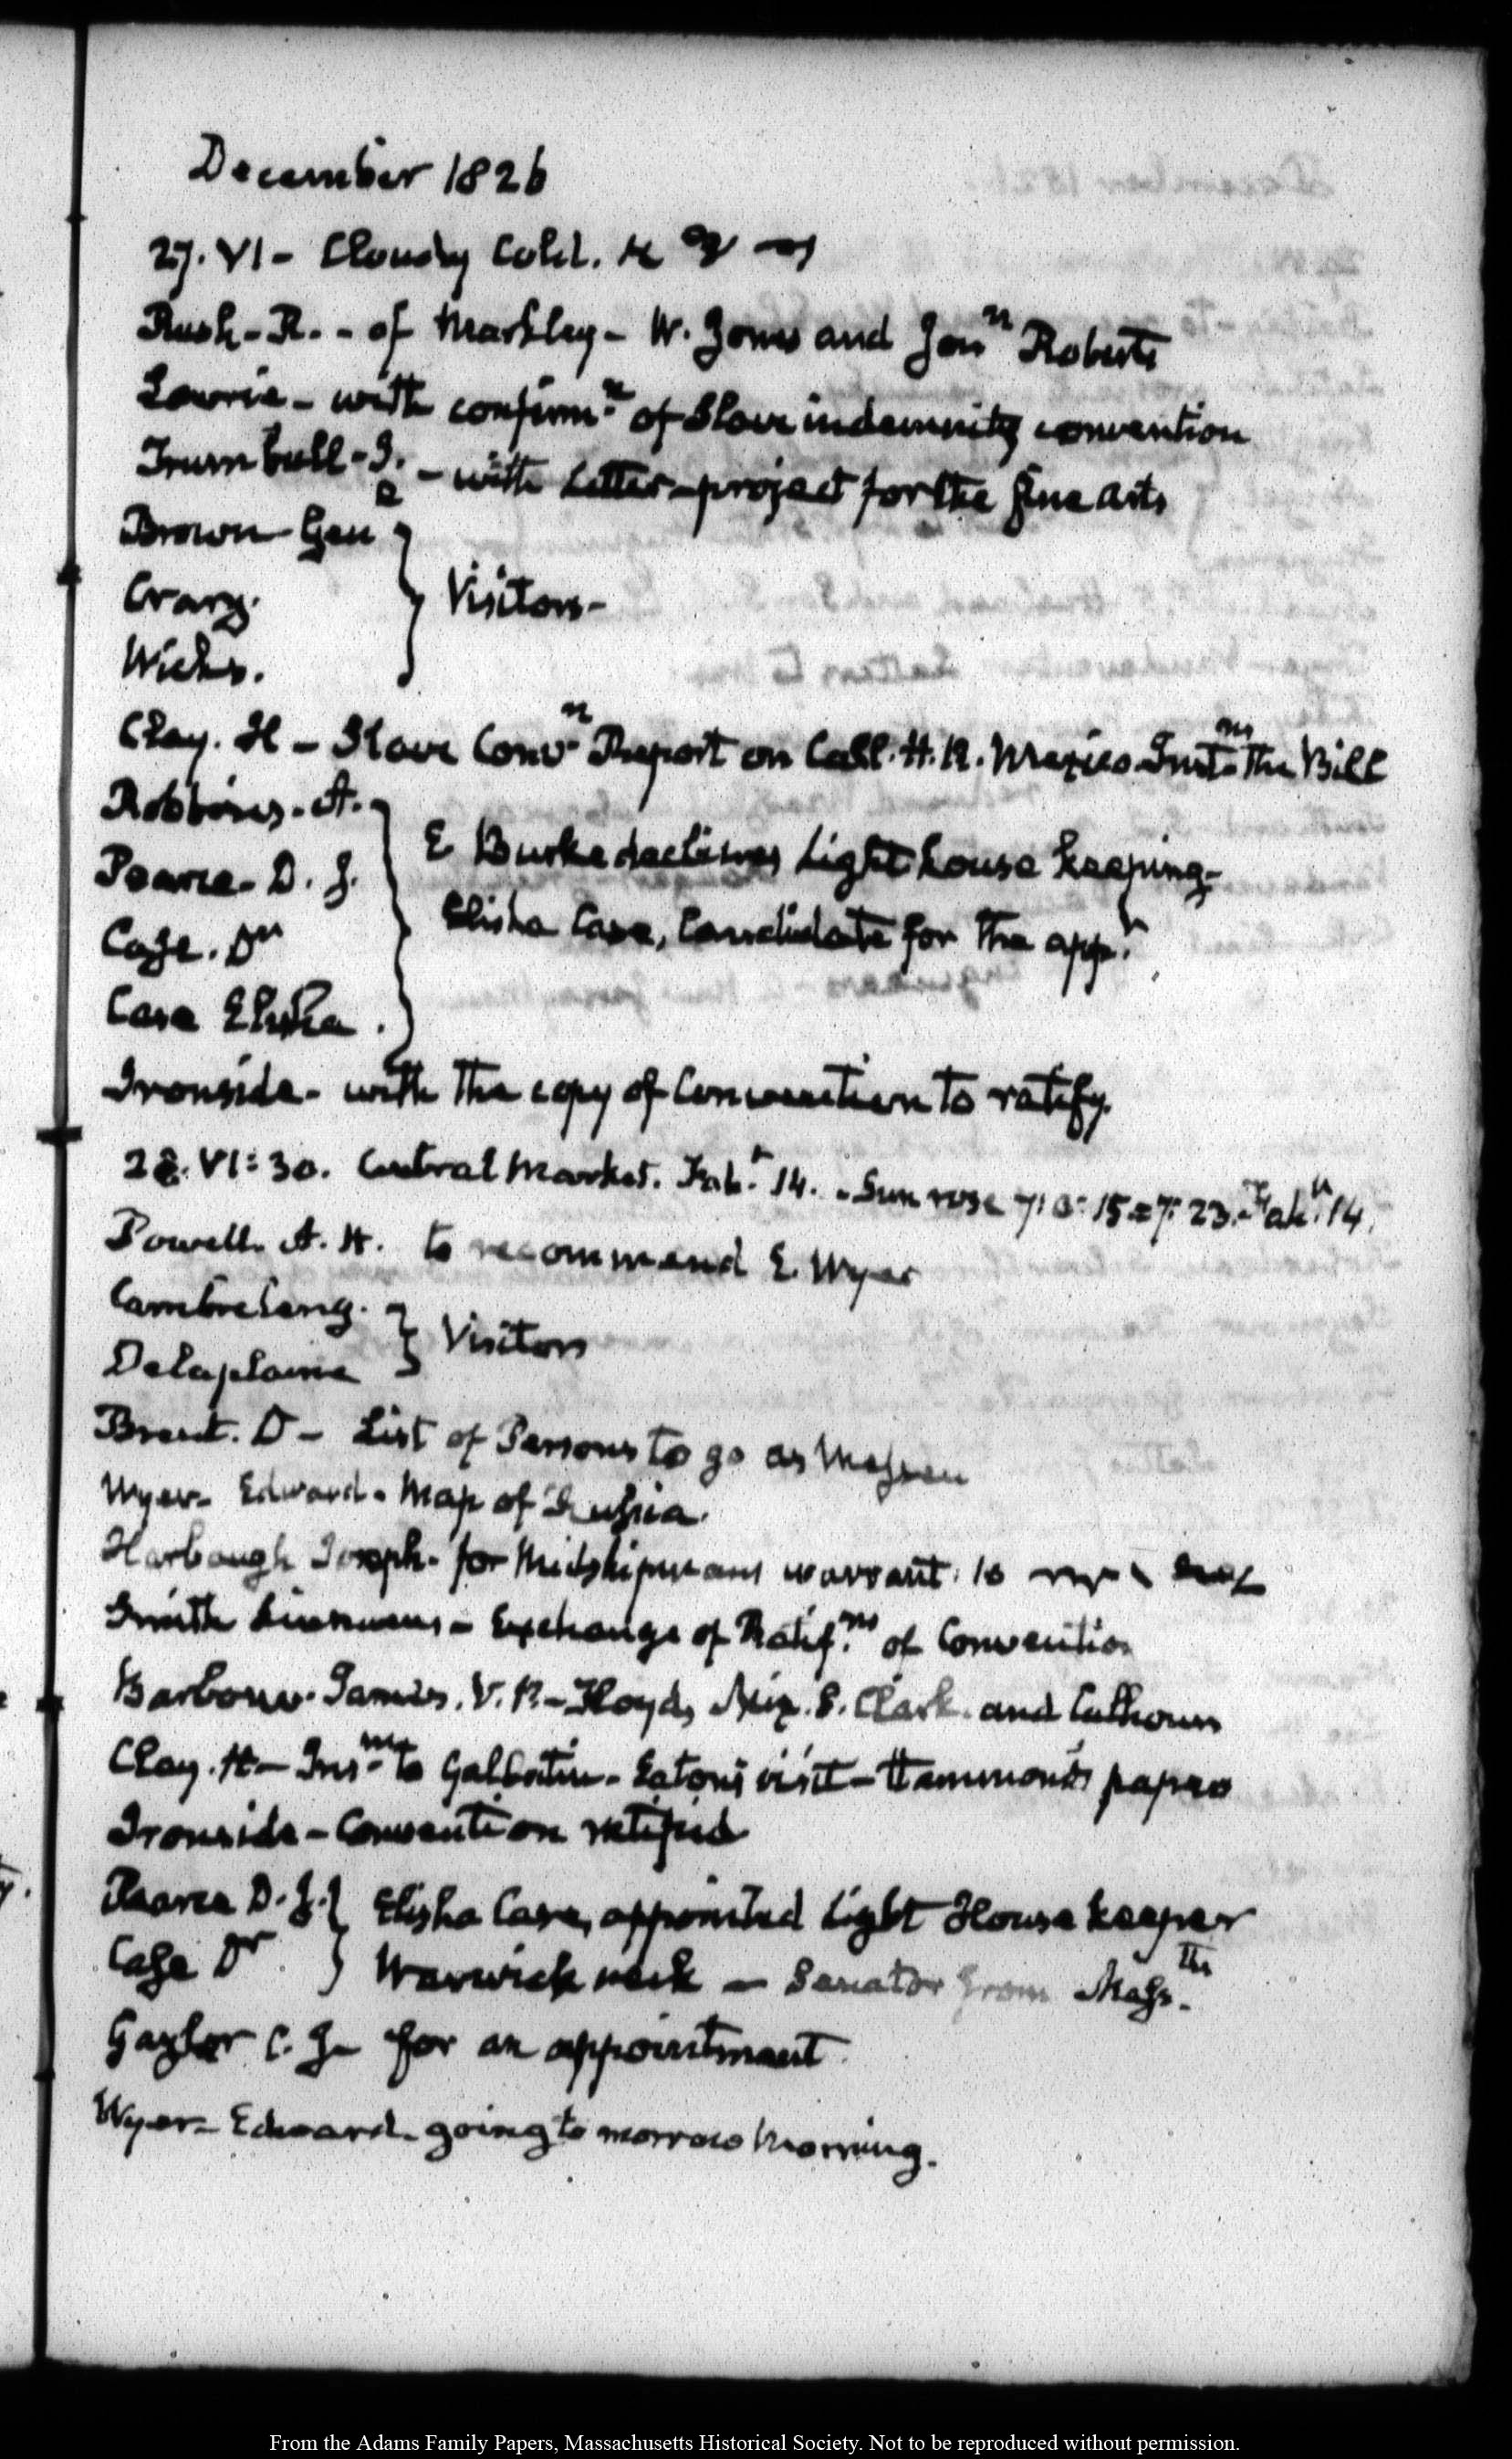 December 1826
27. VI - Cloudy Cold.
Rush - R. - of Markley - W. Jones and Jonn Roberts
Lowrie - with confirmn of Slave indemnity convention
Trumbull - J. - with Letter - project for the fine arts
Brown Genl
Crary.
Wicks.
Visitors -
Clay. H - Slave Convn Report on Call. H. R. Mexico Instns The Bill
Robbins. A.
Pearce. D. J.
Case. Dr
Case Elisha.
E Burke declines Light house keeping -
Elisha Case, Candidate for the appt.
Ironside - with the copy of Convention to ratify.
28. VI: 30. Central Market. Fahrt 14. - Sun rose 7: 23. Faht. 14.
Powell. A. H. to recommend E. Wyer
Cambreleng.
Delaplaine
Visitors
Brent. D - List of Persons to go as Messen
Wyer - Edward - Map of Russia.
Harbaugh Joseph - for Midshipmans warrant.
Smith - Exchange of Ratifns of Convention
Barbour James. V. P. - Floyd, Mix. S. Clark. and Calhoun
Clay. H - Insns to Gallatin - Eaton's visit - Hammond's papers
Ironside - Convention ratified
Pearce D. J.
Case Dr
Elisha Case, appointed Light House keeper
Warwick neck - Senator from Masstts
C. J - for an appointment
Wyer - Edward - going to morrow Morning.
From the Adams Family Papers, Massachusetts Historical Society. Not to be reproduced without permission.